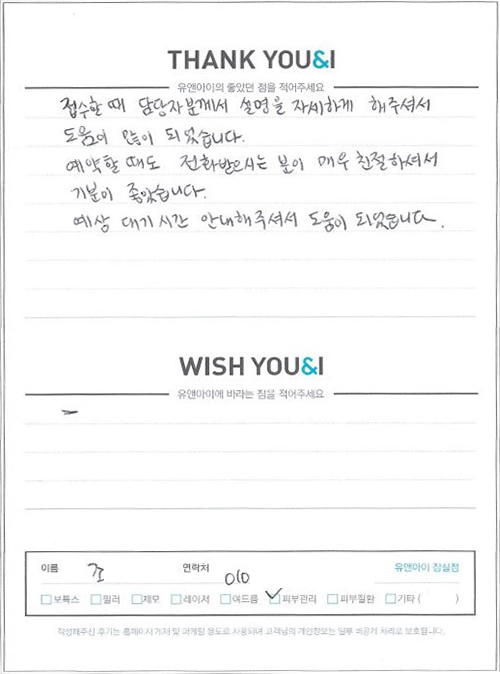 THANK YOU&I
유앤아이의 좋았던 점을 적어주세요
접수할 때 담당자분께서 설명을 자세하게 해주셔서
도움이 많이 되었습니다.
예약할 때도 전화받으시는 분이 매우 친절하셔서
기분이 좋았습니다.
예상 대기시간 안내해주셔서 도움이 되었습니다.
WISH YOU&I
유앤아이에 바라는 점을 적어주세요
-
이름 조 연락처 010 유앤아이 잠실점
보톡스 필러 제모 레이저 여드름 피부관리 피부질환 기타 ( )
작성해주신 후기는 홈페이지 게재 및 마케팅 용도로 사용되며 고객님의 개인정보는 일부 비공개 처리로 보호됩니다.